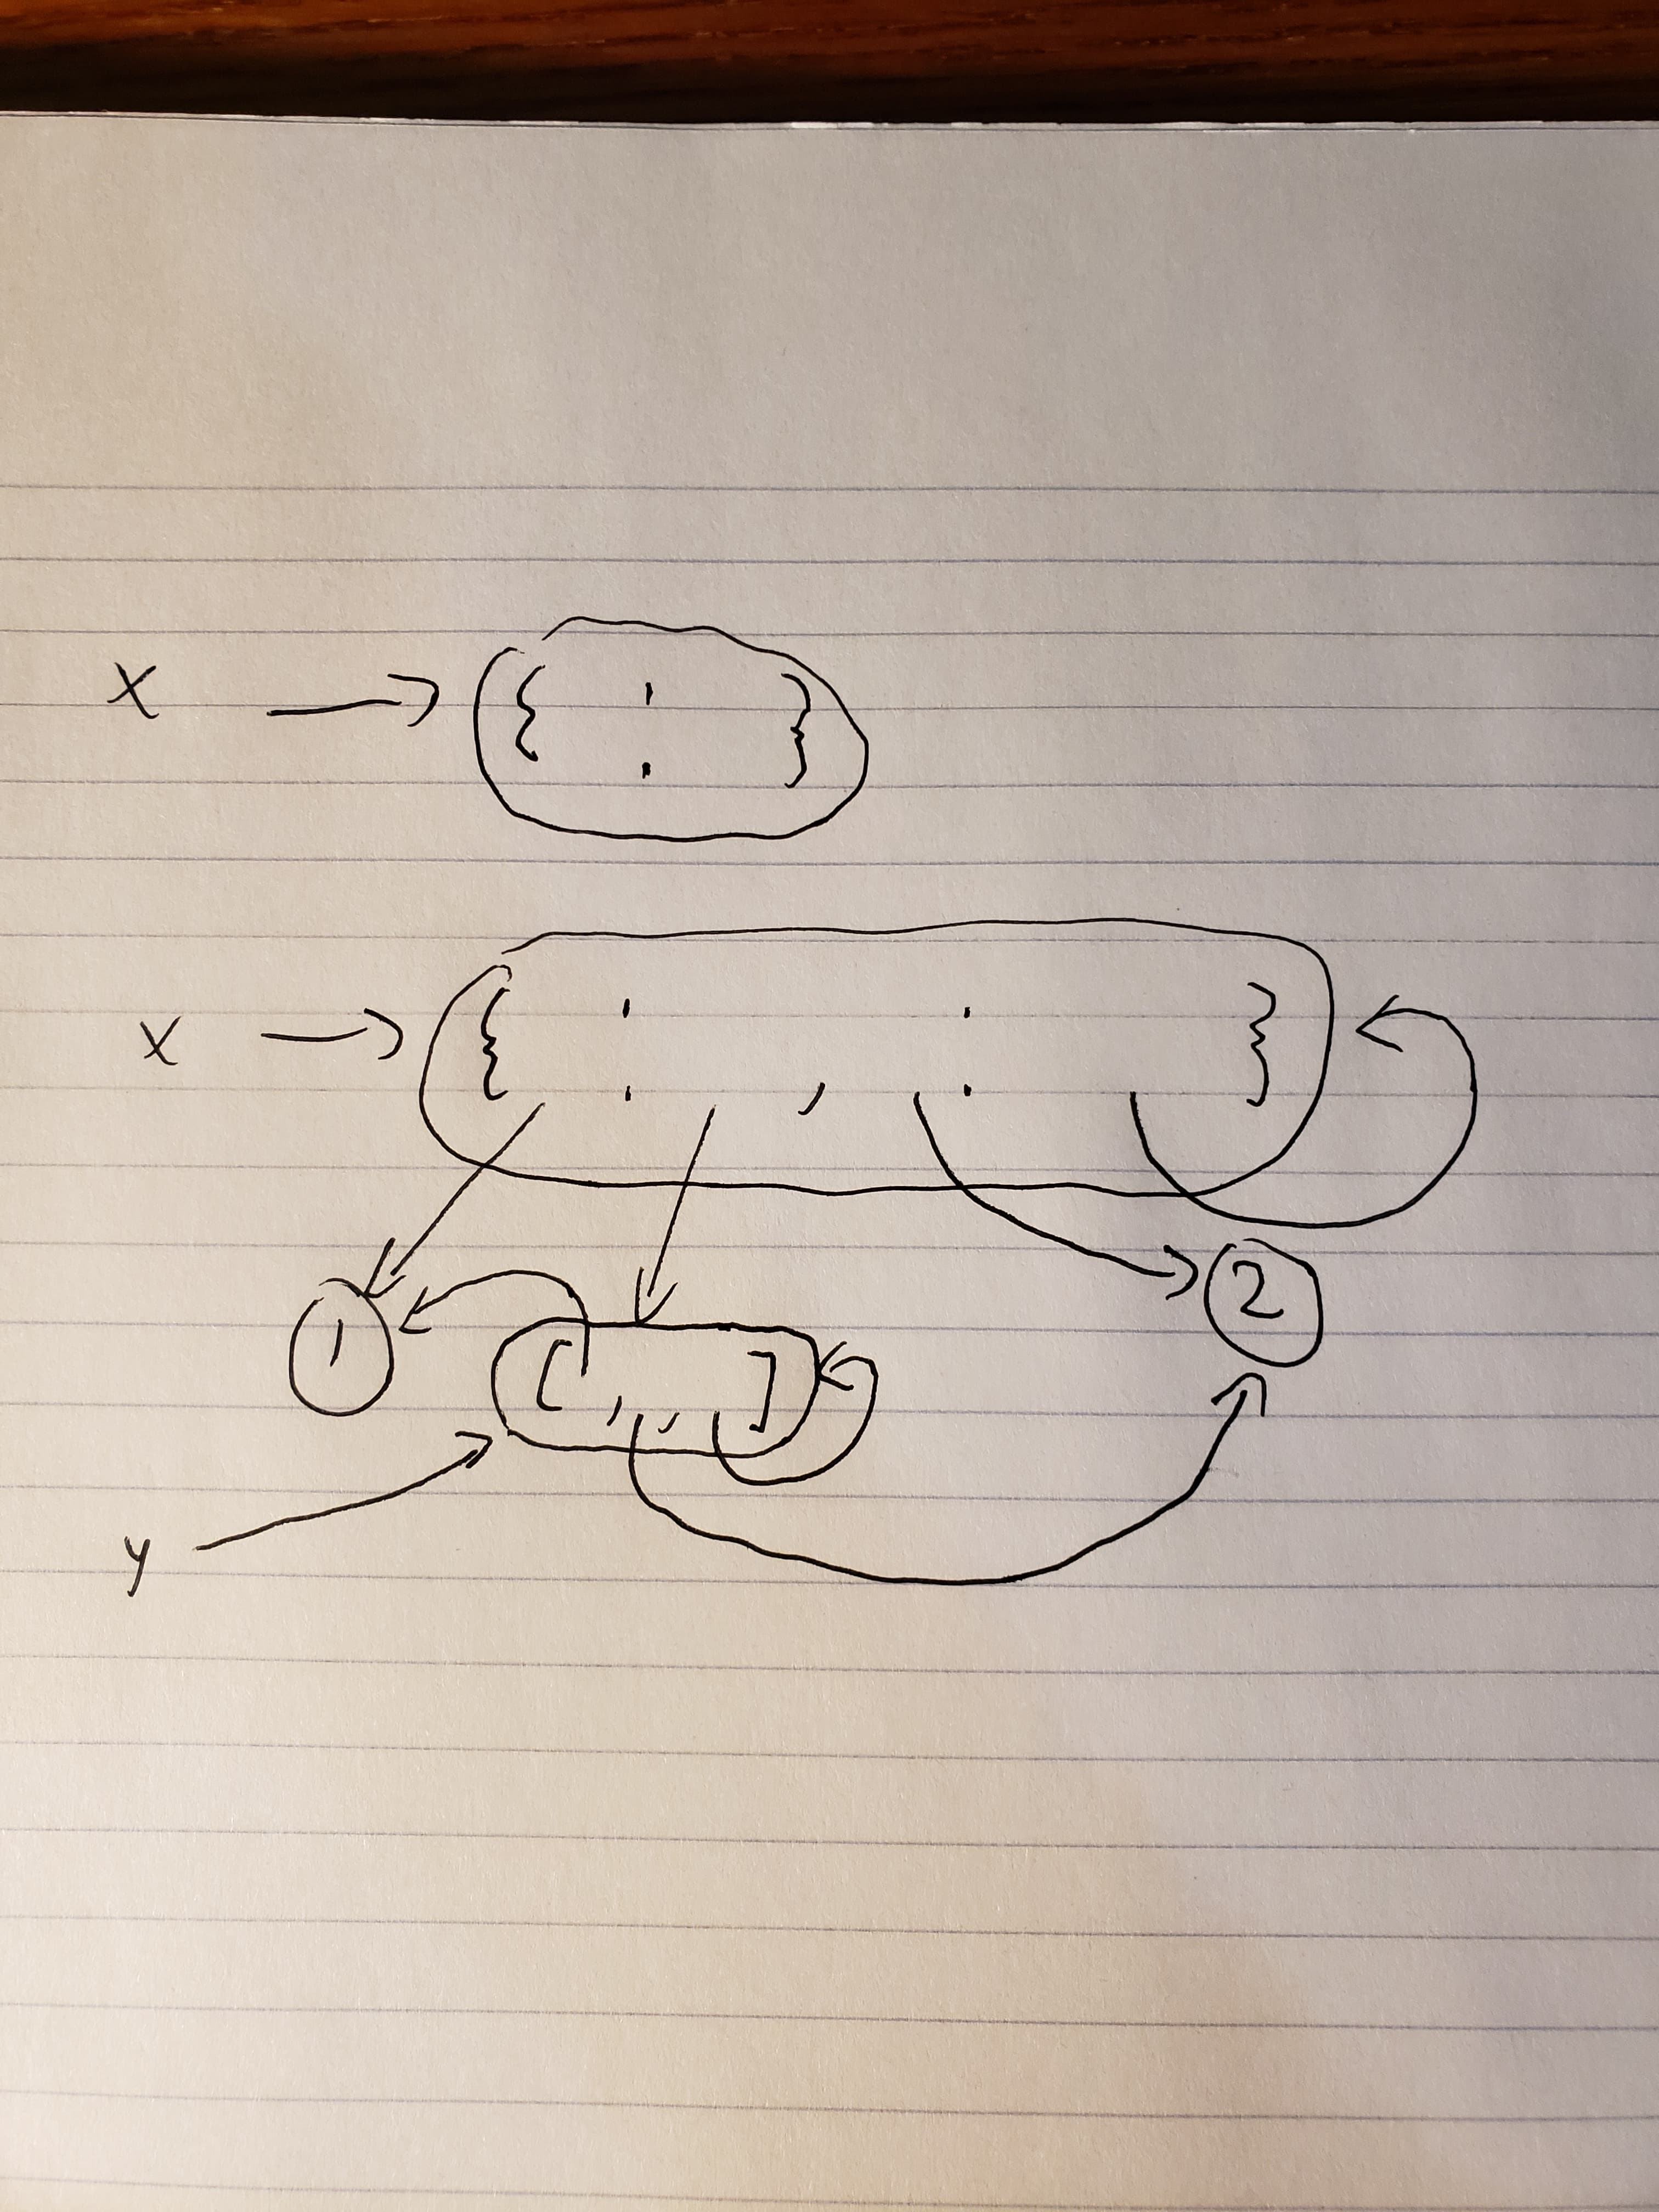 X → { : }
X → { : , : }
1 [ , , ] 2
y